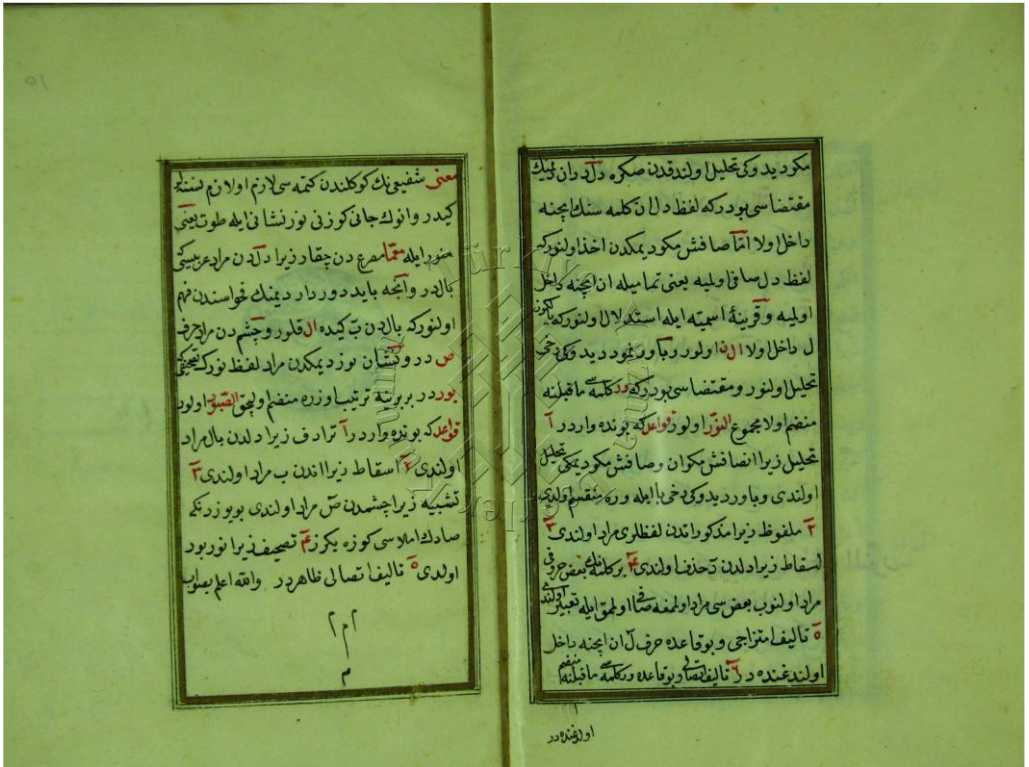 مكو ديدوكى تحليل اولندقدن صكره دل در ان ديمك
مقتضاسى بودركه لفظ دل ان كلمه سنك ايچنه
داخل اولا امّا صافش مكو ديمكدن اخذ اولنور كه
لفظ دل صافى اوليه يعنى تماميله ان ايچنه داخل
اوليه و قرينهٔ اسميته ايله استدلال اولنور كه يالكز
ل داخل اولا الن اولور و باور نمود ديدوكى دخى
تحليل اولنور و مقتضاسى بودركه ور كلمه سى ماقبلنه
منضم اولا مجموع النور اولور قواعد كه بونده واردر ١
تحليل زيرا انصافش مكو ان و صافش مكو ديمكى تحليل
اولندى و باور ديدوكى دخى با ايله وره منقسم اولدى
٢ ملفوظ زيرا مذكوراتدن لفظلرى مراد اولندى ٣
اسقاط زيرا دلدن د حذف اولندى ٤ بر كلمه نك بعض حروفى
مراد اولنوب بعضسى مراد اولمغه صافى اولمق ايله تعبير اولندى
٥ تاليف امتزاجى و بو قاعده حرف ل ان ايچنه داخل
اولدغنده در ٦ تاليف اتصالى و بو قاعده ور كلمه سى ماقبلنه منضم
اولدغنده در
معنى شفيعى نك كوكلندن كتمه سى لازم اولان م
كيدر وانوك جانى كوزنى نور نشانى ايله طوت يعنى
ايله معمّا مصرع دن چقار زيرا دل دن مراد عربيسى كه
بال در و آنچه بايد دور دار ديمنك فحواسندن فهم
اولنور كه بال دن ب كيده ال قلور و چشم دن مراد حرف
ص در و نشان نور ديمكدن مراد لفظ نورك تصحيفى كه
بور در بربرينه ترتيب اوزره منضم اوليجق اولور
قواعد كه بونده واردر ١ ترادف زيرا دلدن بال مراد
اولندى ٢ اسقاط زيرا اندن ب مراد اولندى ٣
تشبيه زيرا چشمدن ص مراد اولندى بو يوزدنكه
صادك املاسى كوزه بكزر ٤ تصحيف زيرا نور بور
اولدى ٥ تاليف اتصالى ظاهردر والله اعلم بصواب
م م م
م